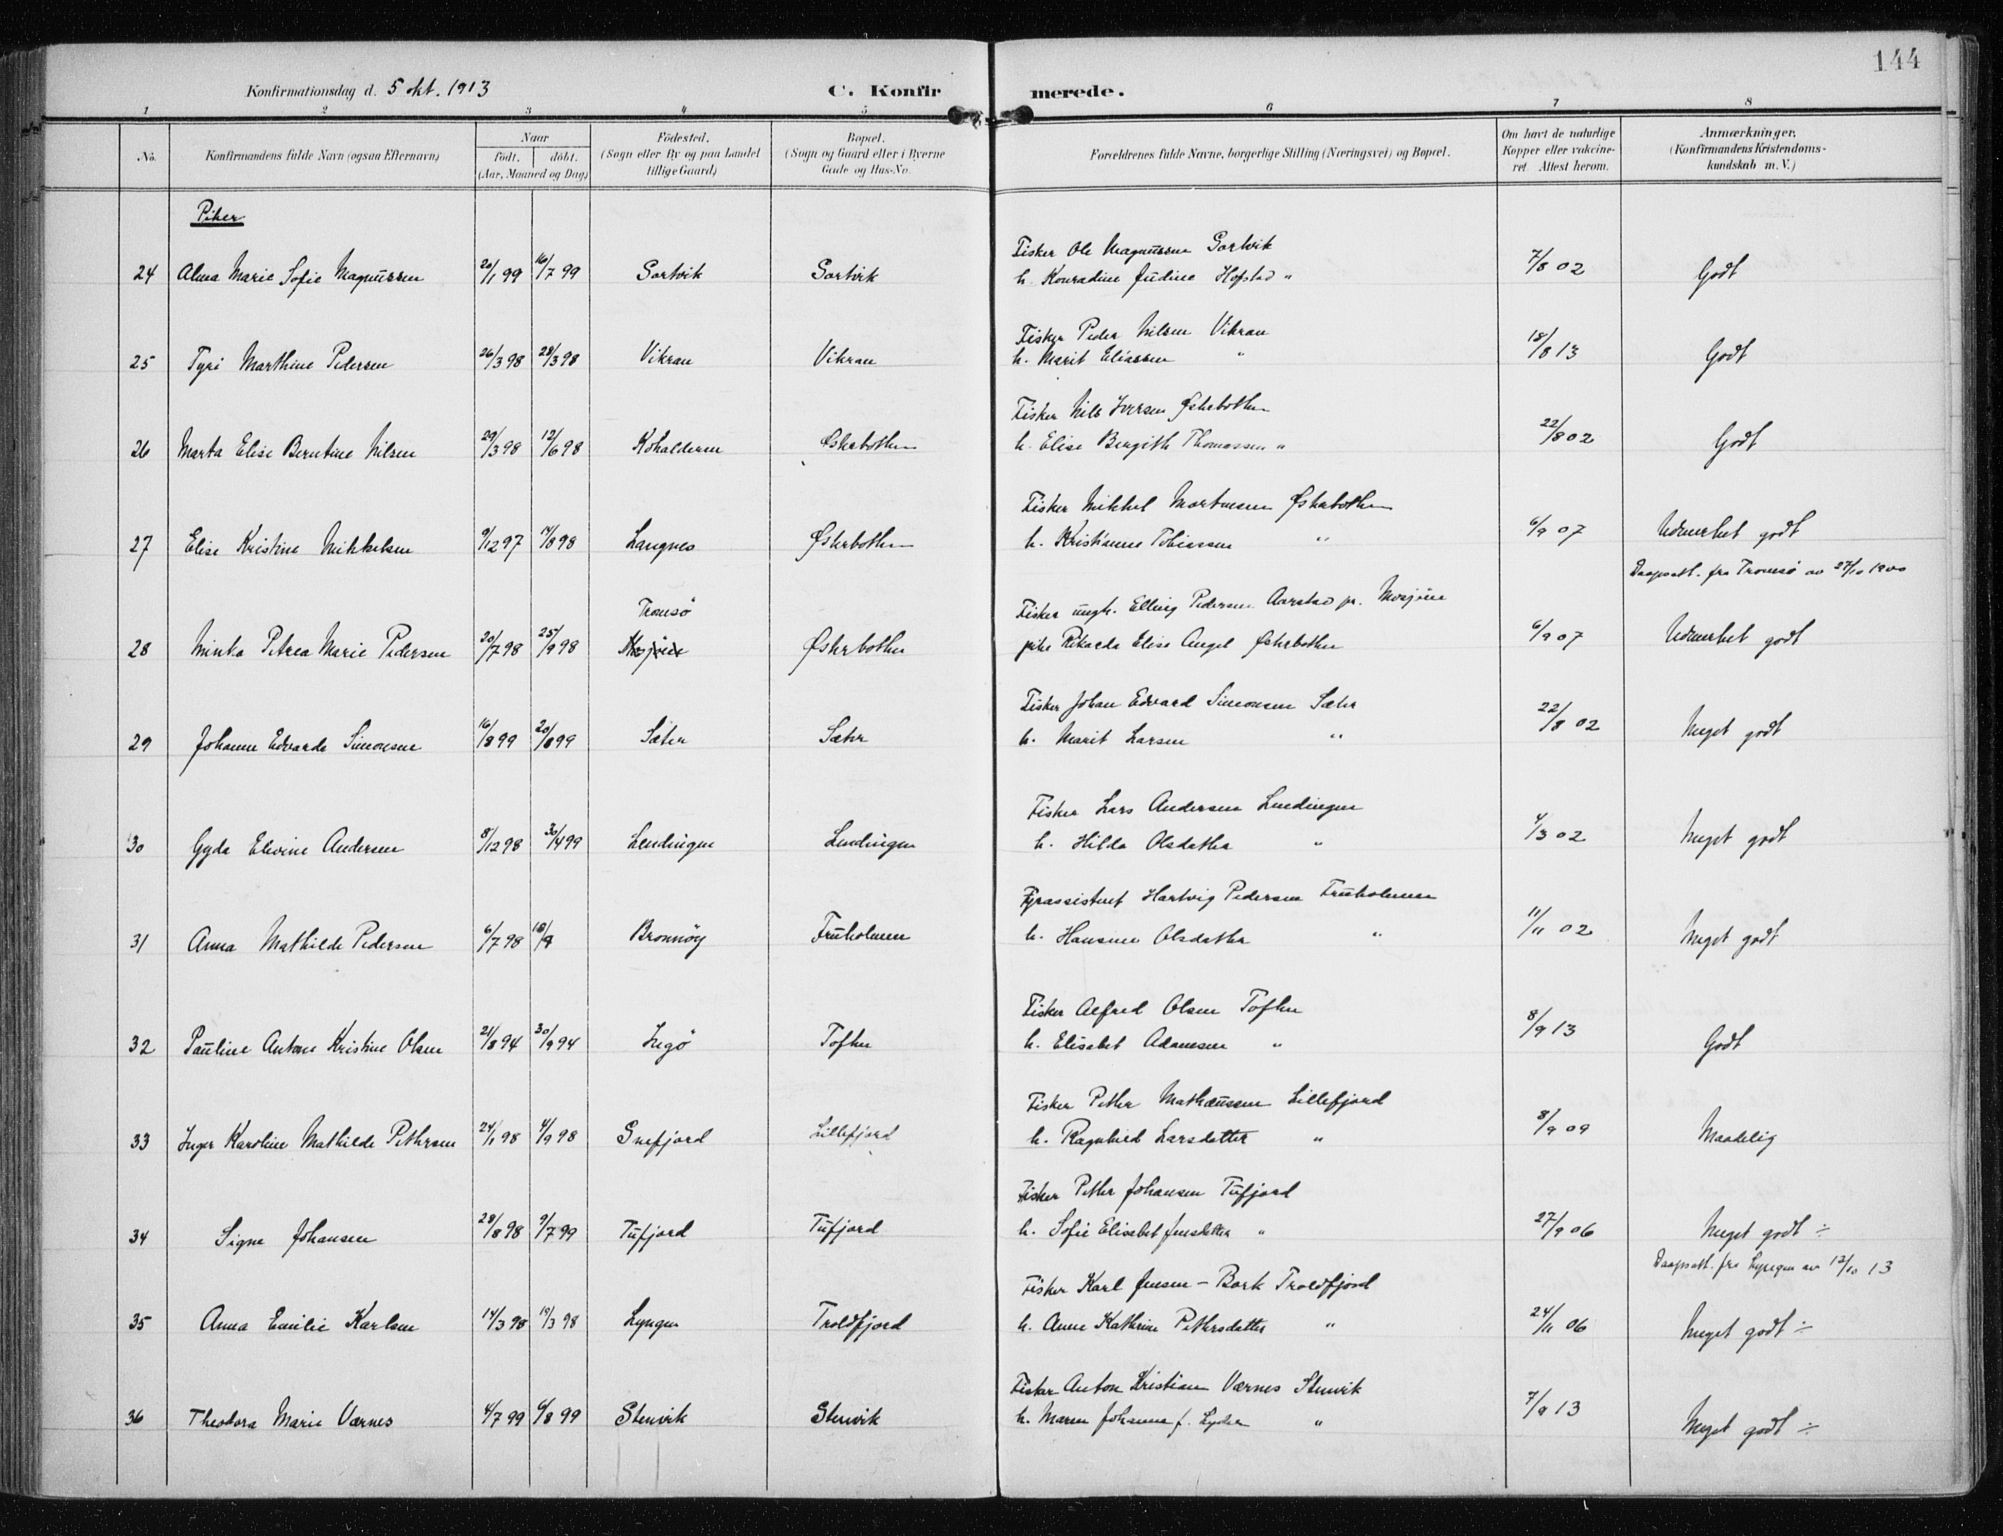 144
Konfirmationsdag d. 5 okt. 1913
C. Konfirmerede.
1 2 3 4 5 6 7 8
No. Konfirmandens fulde Navn (ogsaa Efternavn) Naar født. døbt. (Aar, Maaned og Dag) Fødested. (Sogn eller By og paa Landet tillige Gaard) Bopæl. (Sogn og Gaard eller i Byerne Gade og Hus-No. Forældrenes fulde Navne, borgerlige Stilling (Næringsvei) og Bopæl. Om havt de naturlige Kopper eller vakcineret. Attest herom. Anmærkninger. (Konfirmandens Kristendomskundskab m. V.)
Piker
Fisker Ole Magnussen Gortvik
24 Alma Marie Sofie Magnussen 20/1 99 16/7 99 Gortvik Gortvik h. Konradine Judine Hofstad " 7/8 02 Godt
Fisker Peder Nilsen Vikran
25 Tyri Marthine Pedersen 26/3 98 28/3 98 Vikran Vikran h. Marit Eliassen " 18/8 13 Godt
Fisker Nils Iversen Østerbotten
26 Marta Elise Berntine Nilsen 29/3 98 12/6 98 Kokelderen Østerbotten h. Elise Bergith Thomassen " 22/8 02 Godt
Fisker Mikkel Mortensen Østerbotten
27 Elise Kristine Mikkelsen 9/12 97 14/8 98 Langnes Østerbotten h. Kristianne Tobiassen " 6/9 07 Udmerket godt
Daapsatt. fra Tromsø av 27/10 1900
Tromsö Fisker ungk. Elling Pedersen Aarstad pr. Mosjøen
28 Minka Petrea Marie Pedersen 20/7 98 25/9 98 Mosjøen Østerbotten pike Rikarda Elise Angel Østerbotten 6/9 07 Udmerket godt
Fisker Johan Edvard Simonsen Sæter
29 Johanne Edvarda Simonsen 16/8 99 20/8 99 Sæter Sæter h. Marit Larsen " 22/8 02 Meget godt
Fisker Lars Andersen Lendingen
30 Gyda Elvine Andersen 8/12 98 30/4 99 Lendingen Lendingen h. Hilda Olsdatter " 4/3 02 Meget godt
Fyrassistent Hartvig Pedersen Fruholmen
31 Anna Mathilde Pedersen 6/7 98 18/9 Brønnøy Fruholmen h. Hansine Olsdatter " 11/11 02 Meget godt
Fisker Alfred Olsen Toften
32 Pauline Antone Kristine Olsen 21/8 94 30/9 94 Ingö Toften h. Elisabet Adamsen " 8/9 13 Godt
Fisker Petter Mathæussen Lillefjord
33 Inger Karoline Mathilde Pettersen 24/1 98 4/9 98 Snefjord Lillefjord h. Ragnhild Larsdatter " 8/9 09 Maadelig
Fisker Petter Johansen Tufjord
34 Signe Johansen 28/8 98 9/7 99 Tufjord Tufjord h. Sofie Elisabet Jensdatter " 27/9 06 Meget godt ÷
Daapsatt. fra Lyngen av 12/10 13
Fisker Karl Jensen - Bork Troldfjord
35 Anna Emilie Karlsen 14/3 98 19/3 98 Lyngen Troldfjord h. Anne Kathrine Pettersdatter " 24/11 06 Meget godt ÷
Fisker Anton Kristian Værnes Stenvik
36 Theodora Marie Værnes 4/7 99 6/8 99 Stenvik Stenvik h. Maren Johanna f. Lyder " 7/9 13 Meget godt ÷